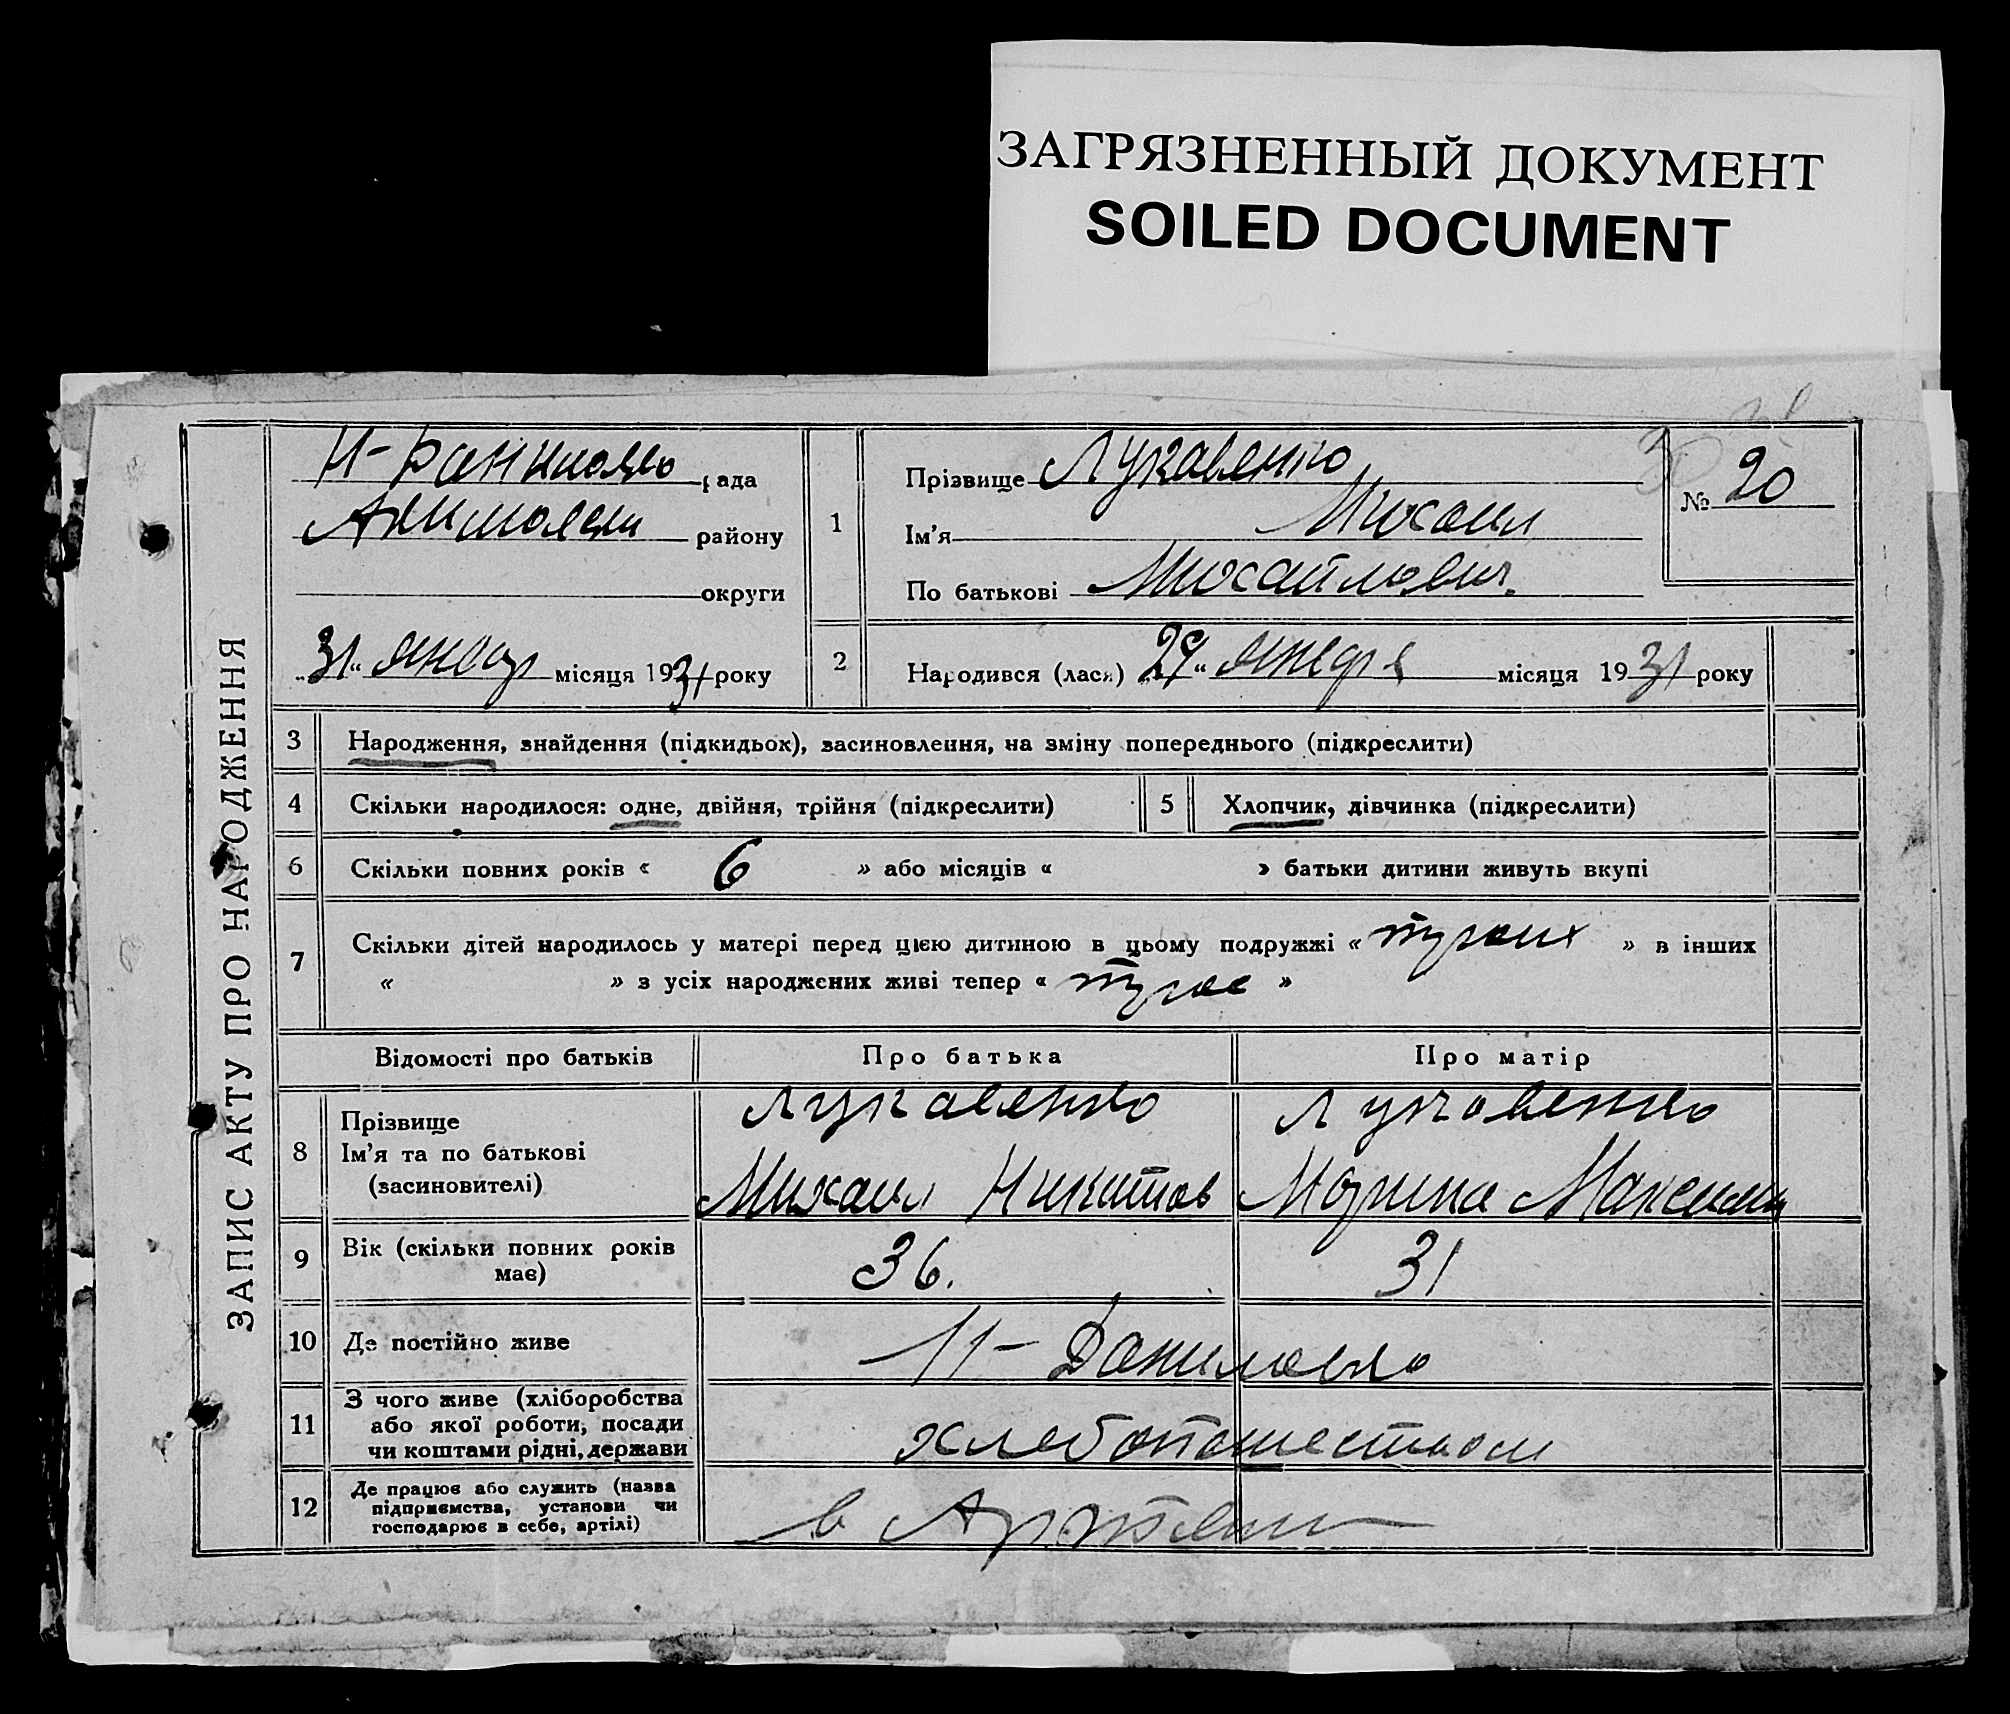 ЗАГРЯЗНЕННЫЙ ДОКУМЕНТ
SOILED DOCUMENT
ЗАПИС АКТУ ПРО НАРОДЖЕННЯ
рада
району
округи
„31“ январ місяця 1931 року
1
Прізвище Лукавенко
Ім'я Михаил
По батькові Михайлович.
№ 20
2
Народився (лася) „29“ января місяця 1931 року
3 Народження, знайдення (підкидьок), засиновлення, на зміну попереднього (підкреслити)
4 Скільки народилося: одне, двійня, трійня (підкреслити)
5 Хлопчик, дівчинка (підкреслити)
6 Скільки повних років « 6 » або місяців « » батьки дитини живуть вкупі
7 Скільки дітей народилось у матері перед цією дитиною в цьому подружжі « » в інших
« » з усіх народжених живі тепер « »
Відомості про батьків Про батька Про матір
8 Прізвище Ім'я та по батькові (засиновителі)
Лукавенко Лукавенко
Михаил Никитов Марина Максим
9 Вік (скільки повних років має) 36. 31
10 Де постійно живе Н-Даниловка
11 З чого живе (хліборобства або якої роботи, посади чи коштами рідні, держави
хлебопашеством
12 Де працює або служить (назва підприємства, установи чи господарює в себе, артілі)
в Артели